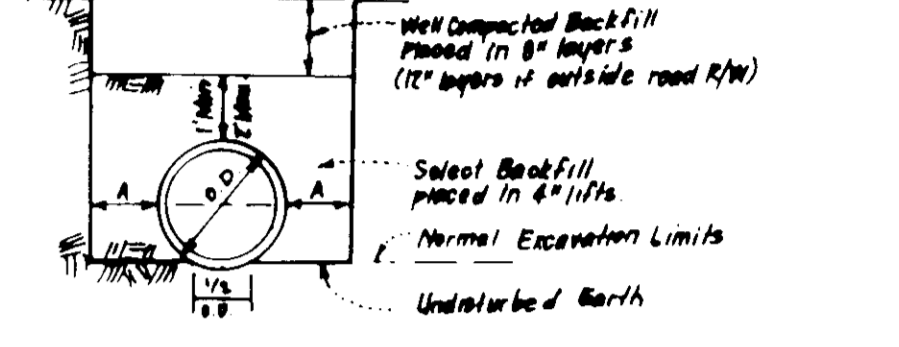 Well Compacted Backfill
Placed in 8" layers
(12" layers if outside road R/W)
1' Min
2' Max
Select Backfill
placed in 4" lifts.
A
O.D
A
Normal Excavation Limits
1/2
O.D.
Undisturbed Earth